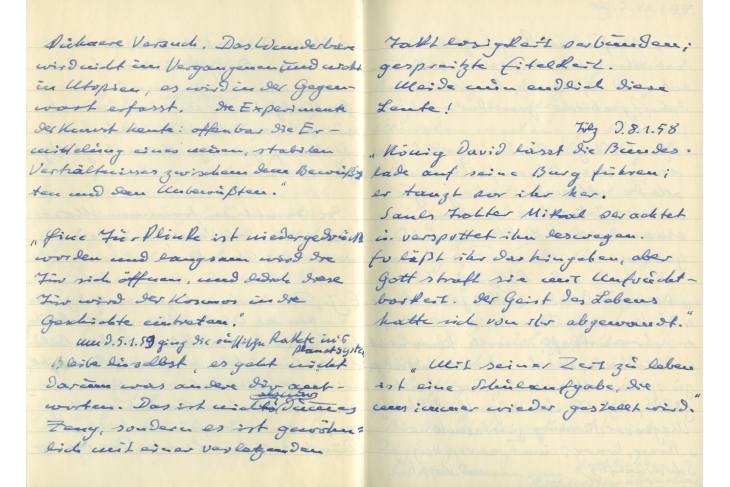 Versuch. Das Wunderbare
wird nicht im Vergangenen und nicht
in Utopien, es wird in der Gegen-
wart erfasst. die Experimente
der Kunst heute: offenbar die Er-
mittelung eines neuen, stabilen
Verhältnisses zwischen dem Bewußt
ten und dem Unbewußten."
„Eine Türklinke ist niedergedrückt
worden und langsam wird die
Tür sich öffnen, und durch diese
Tür wird der Kosmos in die
Geschichte eintreten."
D. 5.1.59 ging die Rakete ins
Planetsystem
Bleibe du selbst, es geht nicht
darum was andere dir ant-
worten. Das ist nicht dummes
Zeug, sondern es ist gewöhn-
lich mit einer verletzenden
Taktlosigkeit verbunden;
gespreitzte Eitelkeit.
Meide nun endlich diese
Leute!
D. 8.1.58
„König David lässt die Bundes-
lade auf seine Burg führen;
er tanzt vor ihr her.
Sauls Tochter Mikal verachtet
u. verspottet ihn deswegen.
Er läßt ihr das hingehen, aber
Gott straft sie mit Unfrucht-
barkeit. Der Geist des Lebens
hatte sich von ihr abgewandt."
„Mit seiner Zeit zu leben
ist eine Schulaufgabe, die
uns immer wieder gestellt wird."